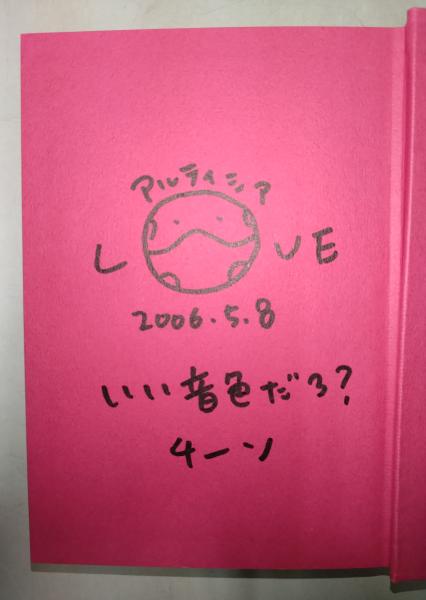 アルテイシア
L VE
2006.5.8
いい音色だろ?
チーン